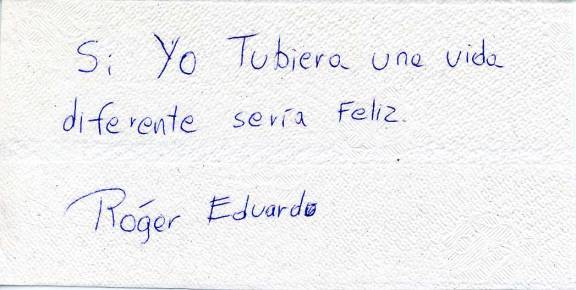 Si Yo Tubiera una vida
diferente sería Feliz.
Róger Eduardo